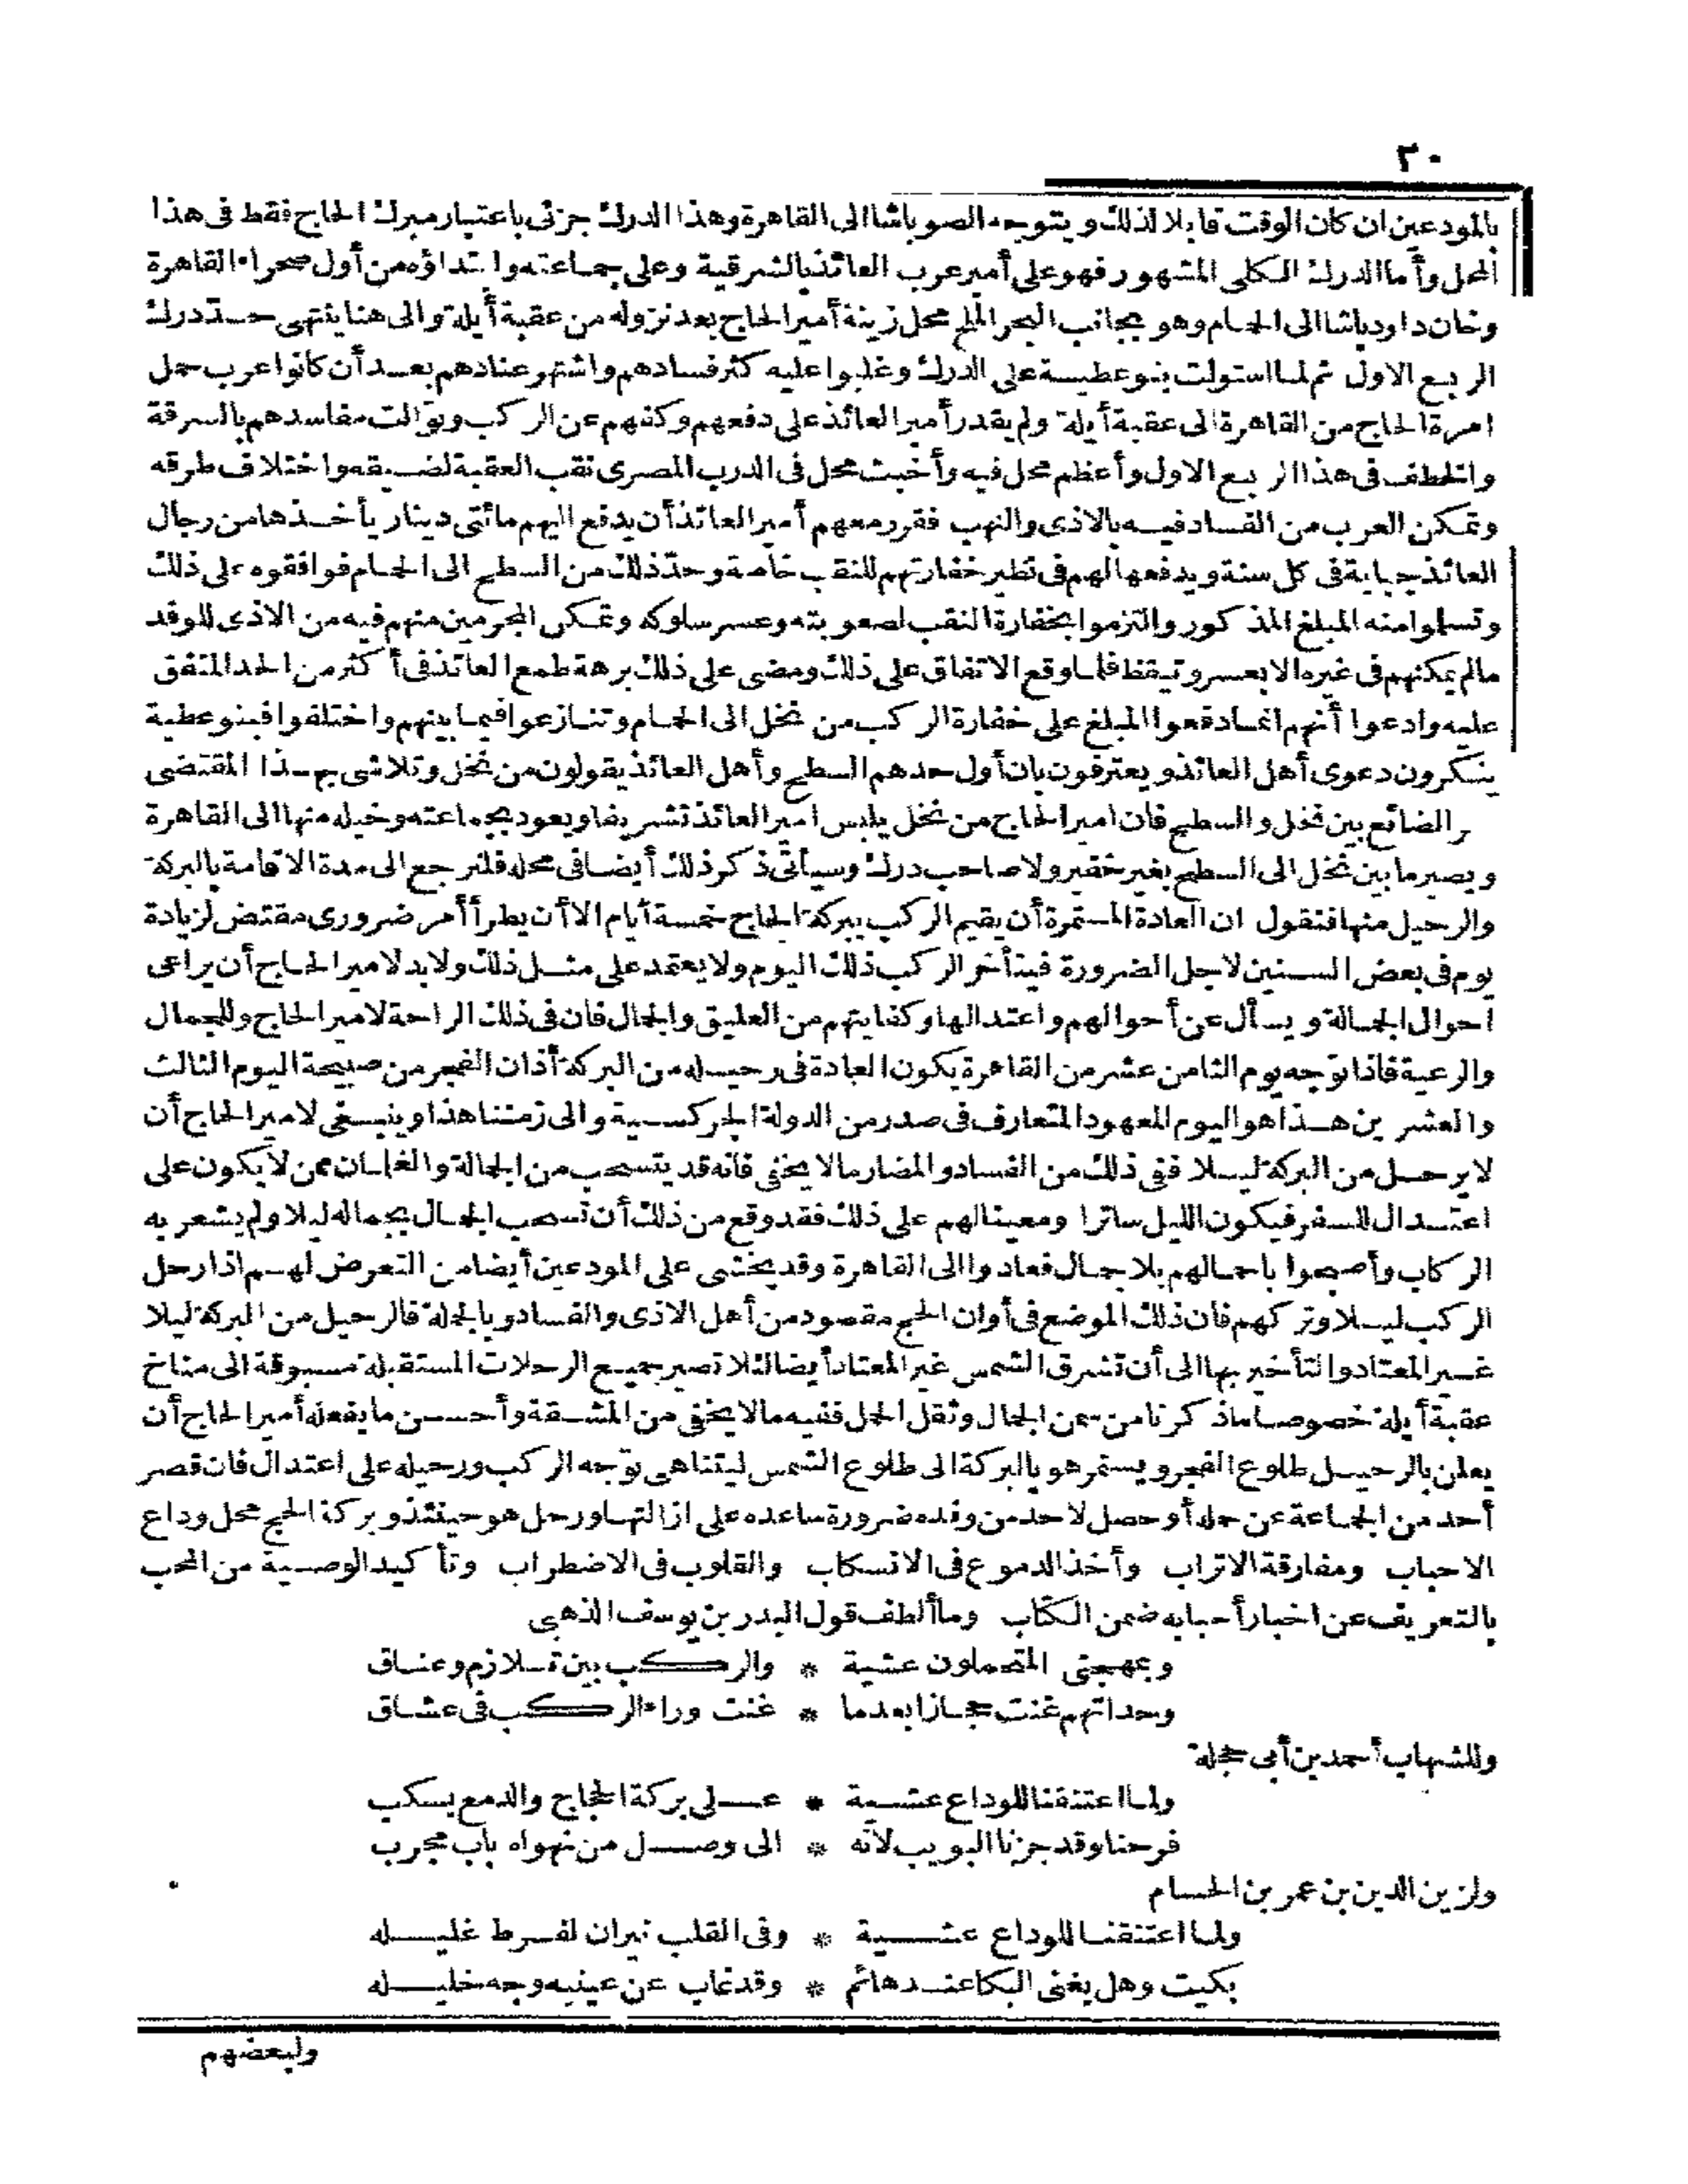 ٣٠
بالمودعين ان كان الوقت قابلا لذلك ويتوجه الصوباشا الى القاهرة وهذا الدرك جزئى باعتبار مبرك الحاج فقط فى هذا
المحل وأما الدرك الكلى المشهور فهو على أمير عرب العائذ بالشرقية وعلى جماعته وابتداؤه من أول صحراء القاهرة
وخان داود باشا الى الحمام وهو بجانب البحر الملح محل زينة أمير الحاج بعد نزوله من عقبة أيلة والى هنا ينتهى حد درك
الربع الاول ثم لما استولت بنو عطية على الدرك وغلبوا عليه كثر فسادهم واشتهر عنادهم بعد أن كانوا عرب حمل
امرة الحاج من القاهرة الى عقبة أيلة ولم يقدر أمير العائذ على دفعهم وكفهم عن الركب وتوالت مفاسدهم بالسرقة
والخطف فى هذا الربع الاول وأعظم محل فيه وأخبث محل فى الدرب المصرى نقب العقبة لضيقه واختلاف طرقه
وتمكن العرب من الفساد فيه بالاذى والنهب فقرر معهم أمير العائذ أن يدفع اليهم مائتى دينار يأخذها من رجال
العائذ جباية فى كل سنة ويدفعها لهم فى نظير خفارتهم للنقب خاصة وحد ذلك من السطح الى الحمام فوافقوه على ذلك
وتسلموا منه المبلغ المذكور والتزموا بخفارة النقب لصعوبته وعسر سلوكه وتمكن المجرمين منهم فيه من الاذى للوفد
مالم يمكنهم فى غيره الا بعسر وتيقظ فلما وقع الاتفاق على ذلك ومضى على ذلك برهة طمع العائذ فى أكثر من الحد المتفق
عليه وادعوا أنهم انما دفعوا المبلغ على خفارة الركب من نخل الى الحمام وتنازعوا فيما بينهم واختلفوا فبنو عطية
ينكرون دعوى أهل العائذ ويعترفون بان أول حدهم السطح وأهل العائذ يقولون من نخل وتلاشى بهذا المقتضى
الضائع بين نخل والسطح فان امير الحاج من نخل يلبس امير العائذ تشريفا ويعود بجماعته وخيله منها الى القاهرة
ويصير ما بين نخل الى السطح بغير خفير ولا صاحب درك وسيأتى ذكر ذلك أيضا فى محله فلنرجع الى مدة الاقامة بالبركة
والرحيل منها فنقول ان العادة المستمرة أن يقيم الركب ببركة الحاج خمسة أيام الا أن يطرأ أمر ضرورى مقتض لزيادة
يوم فى بعض السنين لاجل الضرورة فيتأخر الركب ذلك اليوم ولا يعتمد على مثل ذلك ولا بد لامير الحاج أن يراعى
احوال الجمالة ويسأل عن أحوالهم واعتدالها وكفايتهم من العليق والجمال فان فى ذلك الراحة لامير الحاج وللجمال
والرعية فاذا توجه يوم الثامن عشر من القاهرة يكون العادة فى رحيله من البركة أذان الفجر من صبيحة اليوم الثالث
والعشرين هذا هو اليوم المعهود المتعارف فى صدر من الدولة الجركسية والى زمتنا هذا وينبغى لامير الحاج أن
لا يرحل من البركة ليلا ففى ذلك من الفساد والمضار ما لا يخفى فانه قد يتسحب من الجمالة والغلمان ممن لا يكون على
اعتدال للسفر فيكون الليل ساترا ومعينا لهم على ذلك فقد وقع من ذلك أن تسحب الجمال بجماله ليلا ولم يشعر به
الركاب وأصبحوا باحمالهم بلا جمال فعادوا الى القاهرة وقد يخشى على المودعين أيضا من التعرض لهم اذا رحل
الركب ليلا وتركهم فان ذلك الموضع فى أوان الحج مقصود من أهل الاذى والفساد وبالجملة فالرحيل من البركة ليلا
غير المعتاد والتأخير بها الى أن تشرق الشمس غير المعتاد أيضا لئلا تصير جميع الرحلات المستقبلة مسبوقة الى مناخ
عقبة أيلة خصوصا ما ذكرنا من سمن الجمال وثقل الحمل ففيه ما لا يخفى من المشقة وأحسن ما يفعله أمير الحاج أن
يعلن بالرحيل طلوع الفجر ويستمر هو بالبركة الى طلوع الشمس ليتناهى توجه الركب ورحيله على اعتدال فان قصر
أحد من الجماعة عن حمله أو حصل لاحد من وفده ضرورة ساعده على ازالتها ورحل هو حينئذ وبركة الحج محل وداع
الاحباب ومفارقة الاتراب وأخذ الدموع فى الانسكاب والقلوب فى الاضطراب وتأكيد الوصية من المحب
بالتعريف عن اخبار أحبابه ضمن الكتاب وما ألطف قول البدر بن يوسف الذهبى
وبمهجتى المتحملون عشية * والركب بين تلازم وعناق
وحداتهم غنت حجازا بعدما * غنت وراء الركب فى عشاق
وللشهاب أحمد بن أبى حجلة
ولما اعتنقنا للوداع عشية * على بركة الحجاج والدمع يسكب
فرحنا وقد جزنا البويب لانه * الى وصل من نهواه باب مجرب
ولزين الدين بن عمر بن الحسام
ولما اعتنقنا للوداع عشية * وفى القلب نيران لفرط غليله
بكيت وهل يغنى البكا عند هائم * وقد غاب عن عينيه وجه خليله
ولبعضهم